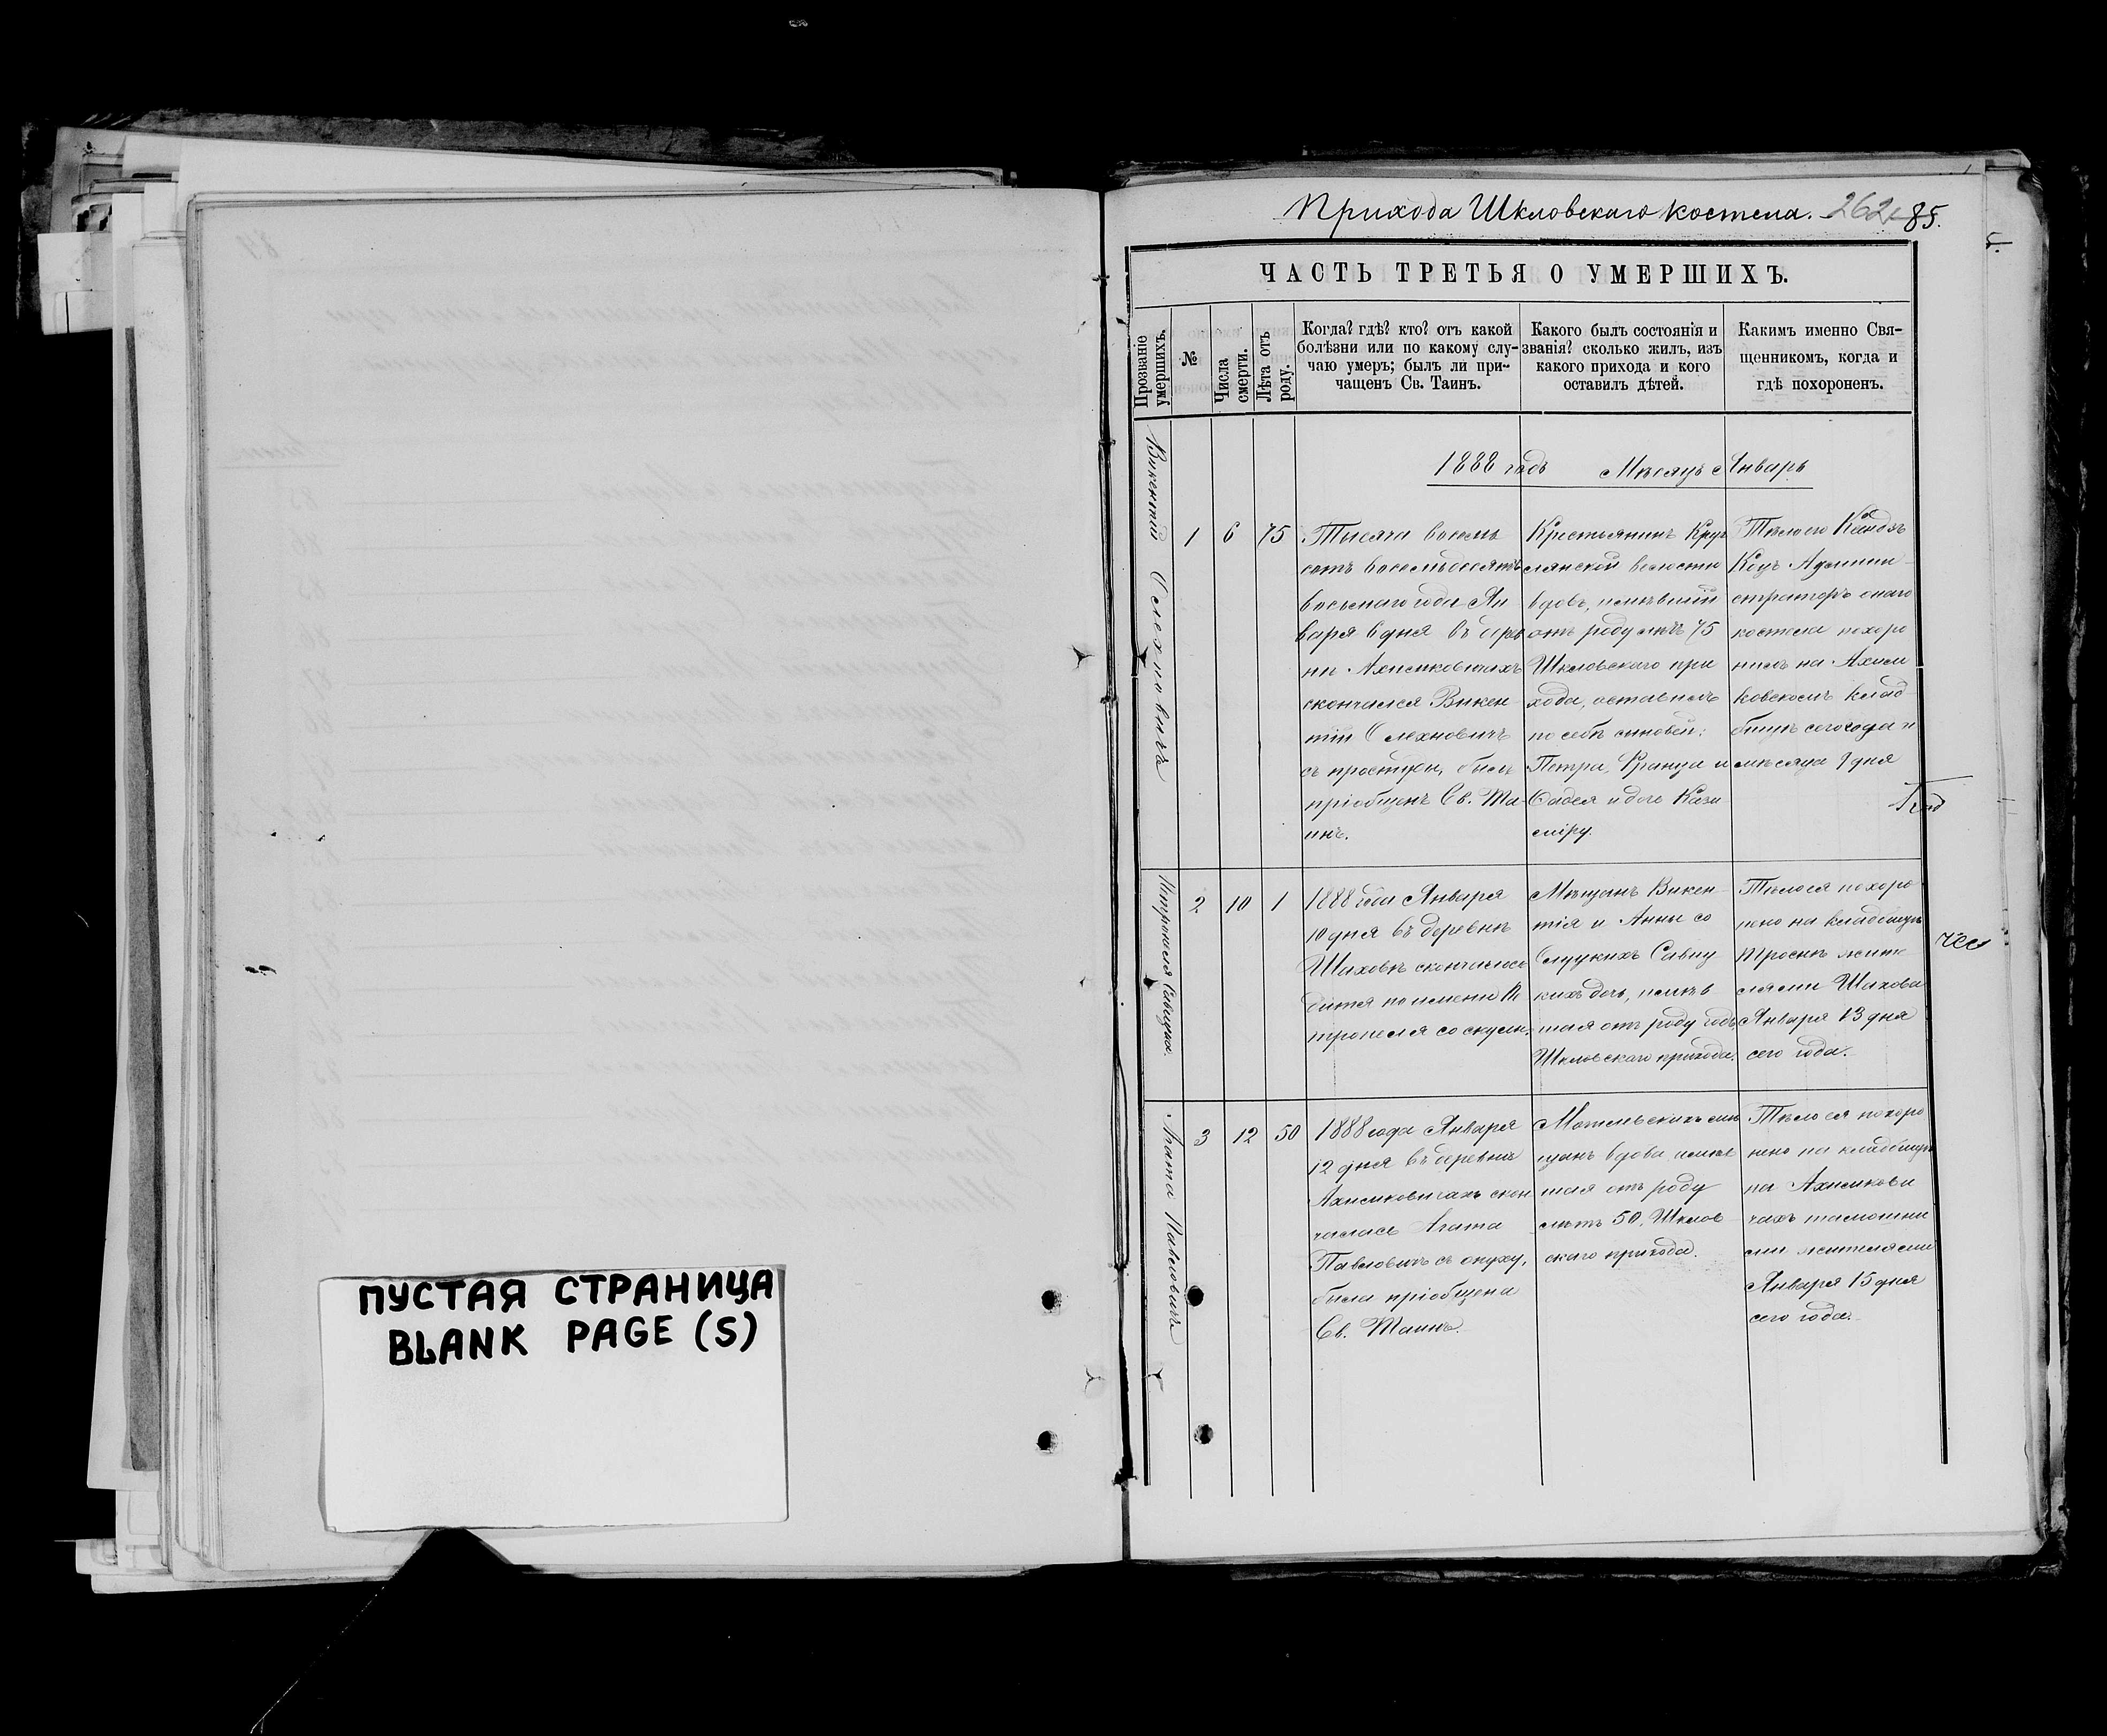 Прихода Шкловскаго костела. 262 85.
ЧАСТЬ ТРЕТЬЯ О УМЕРШИХЪ.
Прозваніе умершихъ.
№
Числа смерти.
Лѣта отъ роду.
Когда? гдѣ? кто? отъ какой
болѣзни или по какому слу-
чаю умеръ; былъ ли при-
чащенъ Св. Таинъ.
Какого былъ состоянія и
званія? сколько жилъ, изъ
какого прихода и кого
оставилъ дѣтей.
Какимъ именно Свя-
щенникомъ, когда и
гдѣ похороненъ.
1888 годъ Мѣсяцъ Январь
Викентій Олехновичъ
1
6
75
Тысяча восемь
сотъ восемьдесятъ
восьмаго года Ян
варя 6 дня въ дерев
ни Ахимковичахъ
скончался Викен
тій Олехновичъ
съ простуды, былъ
пріобщенъ Св. Та-
инъ.
Крестьянинъ Круг
лянской волости
вдовъ, имѣвшій
отъ роду лѣтъ 75
Шкловскаго при
хода, оставилъ
по себѣ сыновей:
Петра, Франца и
Фадея и дочь Кази
міру.
Тѣло его Ксендзъ
Администраторъ онаго
костела похоро
нилъ на Ахим
ковскомъ клад
бищѣ сего года и
мѣсяца 9 дня
Петронеля Савицка.
2
10
1
1888 года Января
10 дня въ деревнѣ
Шаховѣ скончалось
дитя по имени Пе
тронеля со скули.
Мѣщанъ Викен
тія и Анны со
Слуцкихъ Савиц
кихъ дочь, имѣв
шая отъ роду годъ
Шкловскаго прихода.
Тѣло ея похоро
нено на кладбищѣ
жите
лями Шахова
Января 13 дня
сего года.
Агата Павловичъ
3
12
50
1888 года Января
12 дня въ деревнѣ
Ахимковичахъ скон
чалась Агата
Павловичъ съ опуху,
была пріобщена
Св. Таинъ.
Могилевскихъ мѣ
щанъ вдова имѣв
шая отъ роду
лѣтъ 50, Шклов
скаго прихода.
Тѣло ея похоро
нено на кладбищѣ
на Ахимкови
чахъ тамошни
ми жителями
Января 15 дня
сего года.
ПУСТАЯ СТРАНИЦА
BLANK PAGE (S)